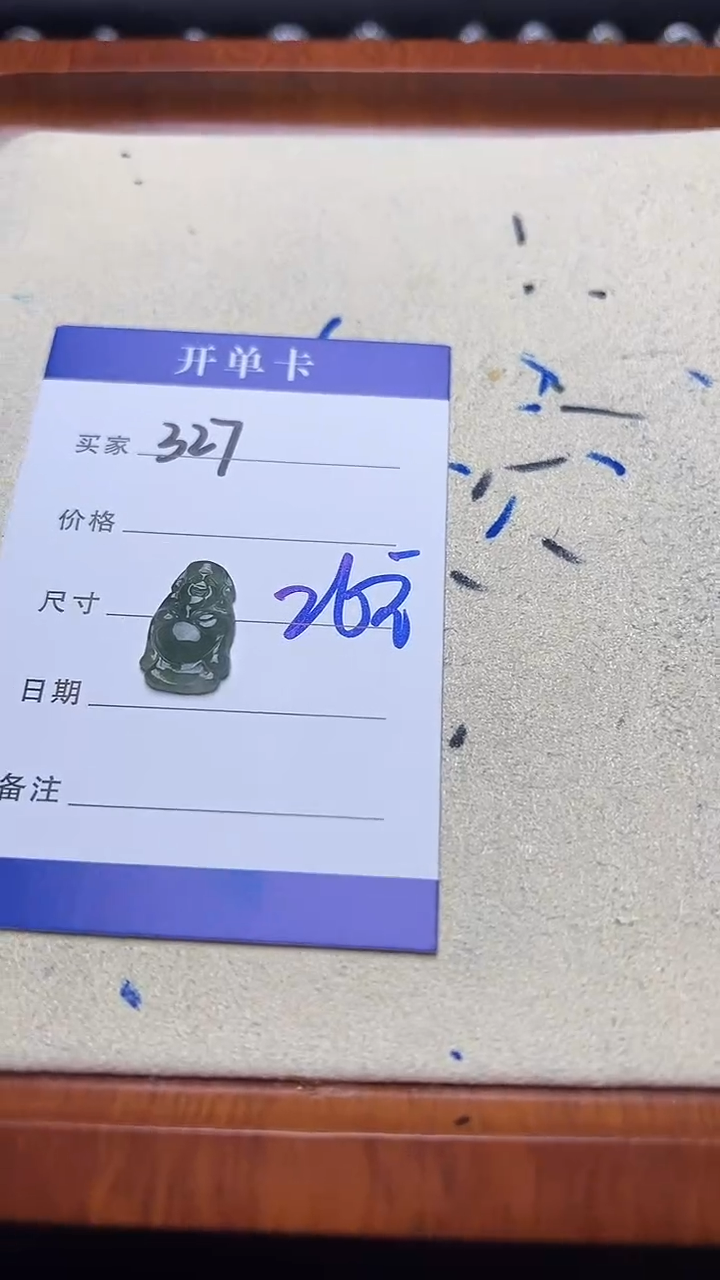 开单卡
买家 327
价格
尺寸 26元
日期
备注